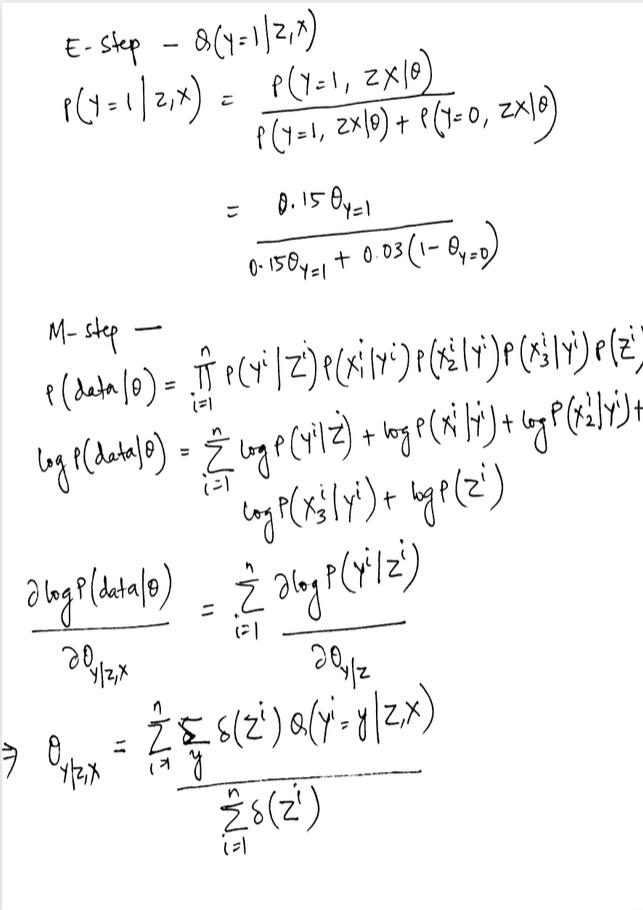 E-Step – Q(Y=1|Z,X)
P(Y=1|Z,X) = P(Y=1, ZX|θ) / P(Y=1, ZX|θ) + P(Y=0, ZX|θ)
= 0.15 θ_{Y=1} / 0.15θ_{Y=1} + 0.03(1-θ_{Y=0})
M-step –
P(data|θ) = ∏_{i=1}^{n} P(Y^i|Z^i) P(X_1^i|Y^i) P(X_2^i|Y^i) P(X_3^i|Y^i) P(Z^i)
log P(data|θ) = Σ_{i=1}^{n} log P(Y^i|Z^i) + log P(X_1^i|Y^i) + log P(X_2^i|Y^i) +
log P(X_3^i|Y^i) + log P(Z^i)
∂ log P(data|θ) / ∂θ_{Y|Z,X} = Σ_{i=1}^{n} ∂ log P(Y^i|Z^i) / ∂θ_{Y|Z}
⇒ θ_{Y|Z,X} = Σ_{i=1}^{n} Σ_y δ(Z^i) Q(Y^i=y|Z,X) / Σ_{i=1}^{n} δ(Z^i)